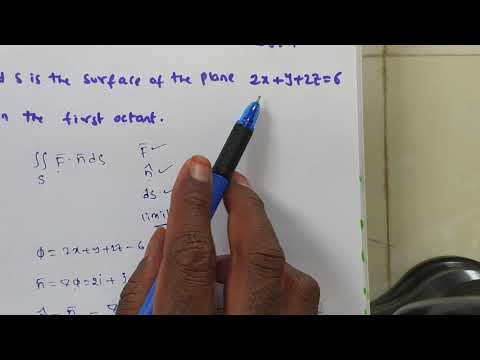 S is the surface of the plane 2x+y+2z=6
the first octant.
∬ F̄·n̄ ds F̄ ✓
S n̂ ✓
ds ✓
φ = 2x+y+2z-6
n̄ = ∇φ = 2i +